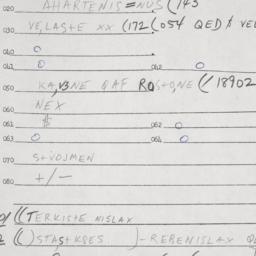 020 AHARTENIS=NUS (143
030 VE,LAS+E XX (172 (054 QED $ VEL
040 O
041 O 042 O
050 KA,V3NE QAF ROS+O,NE (/ 18902
060 NEX
061 $ 062 O
063 O 064 O
070 S+VOJMEN
080 +/-
01 ((TERKISTE NISLAX
2 () STAS+KRES )-REBENISLAX